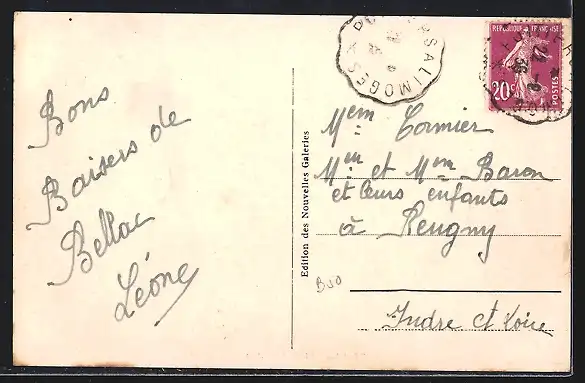 Bons
Baisers de
Bellac
Léone
Edition des Nouvelles Galeries
A LIMOGES
REPUBLIQUE FRANÇAISE
20c
POSTES
Mem Cormier
Mm et Mem Baron
et leurs enfants
à Reugny
B50
Indre et Loire